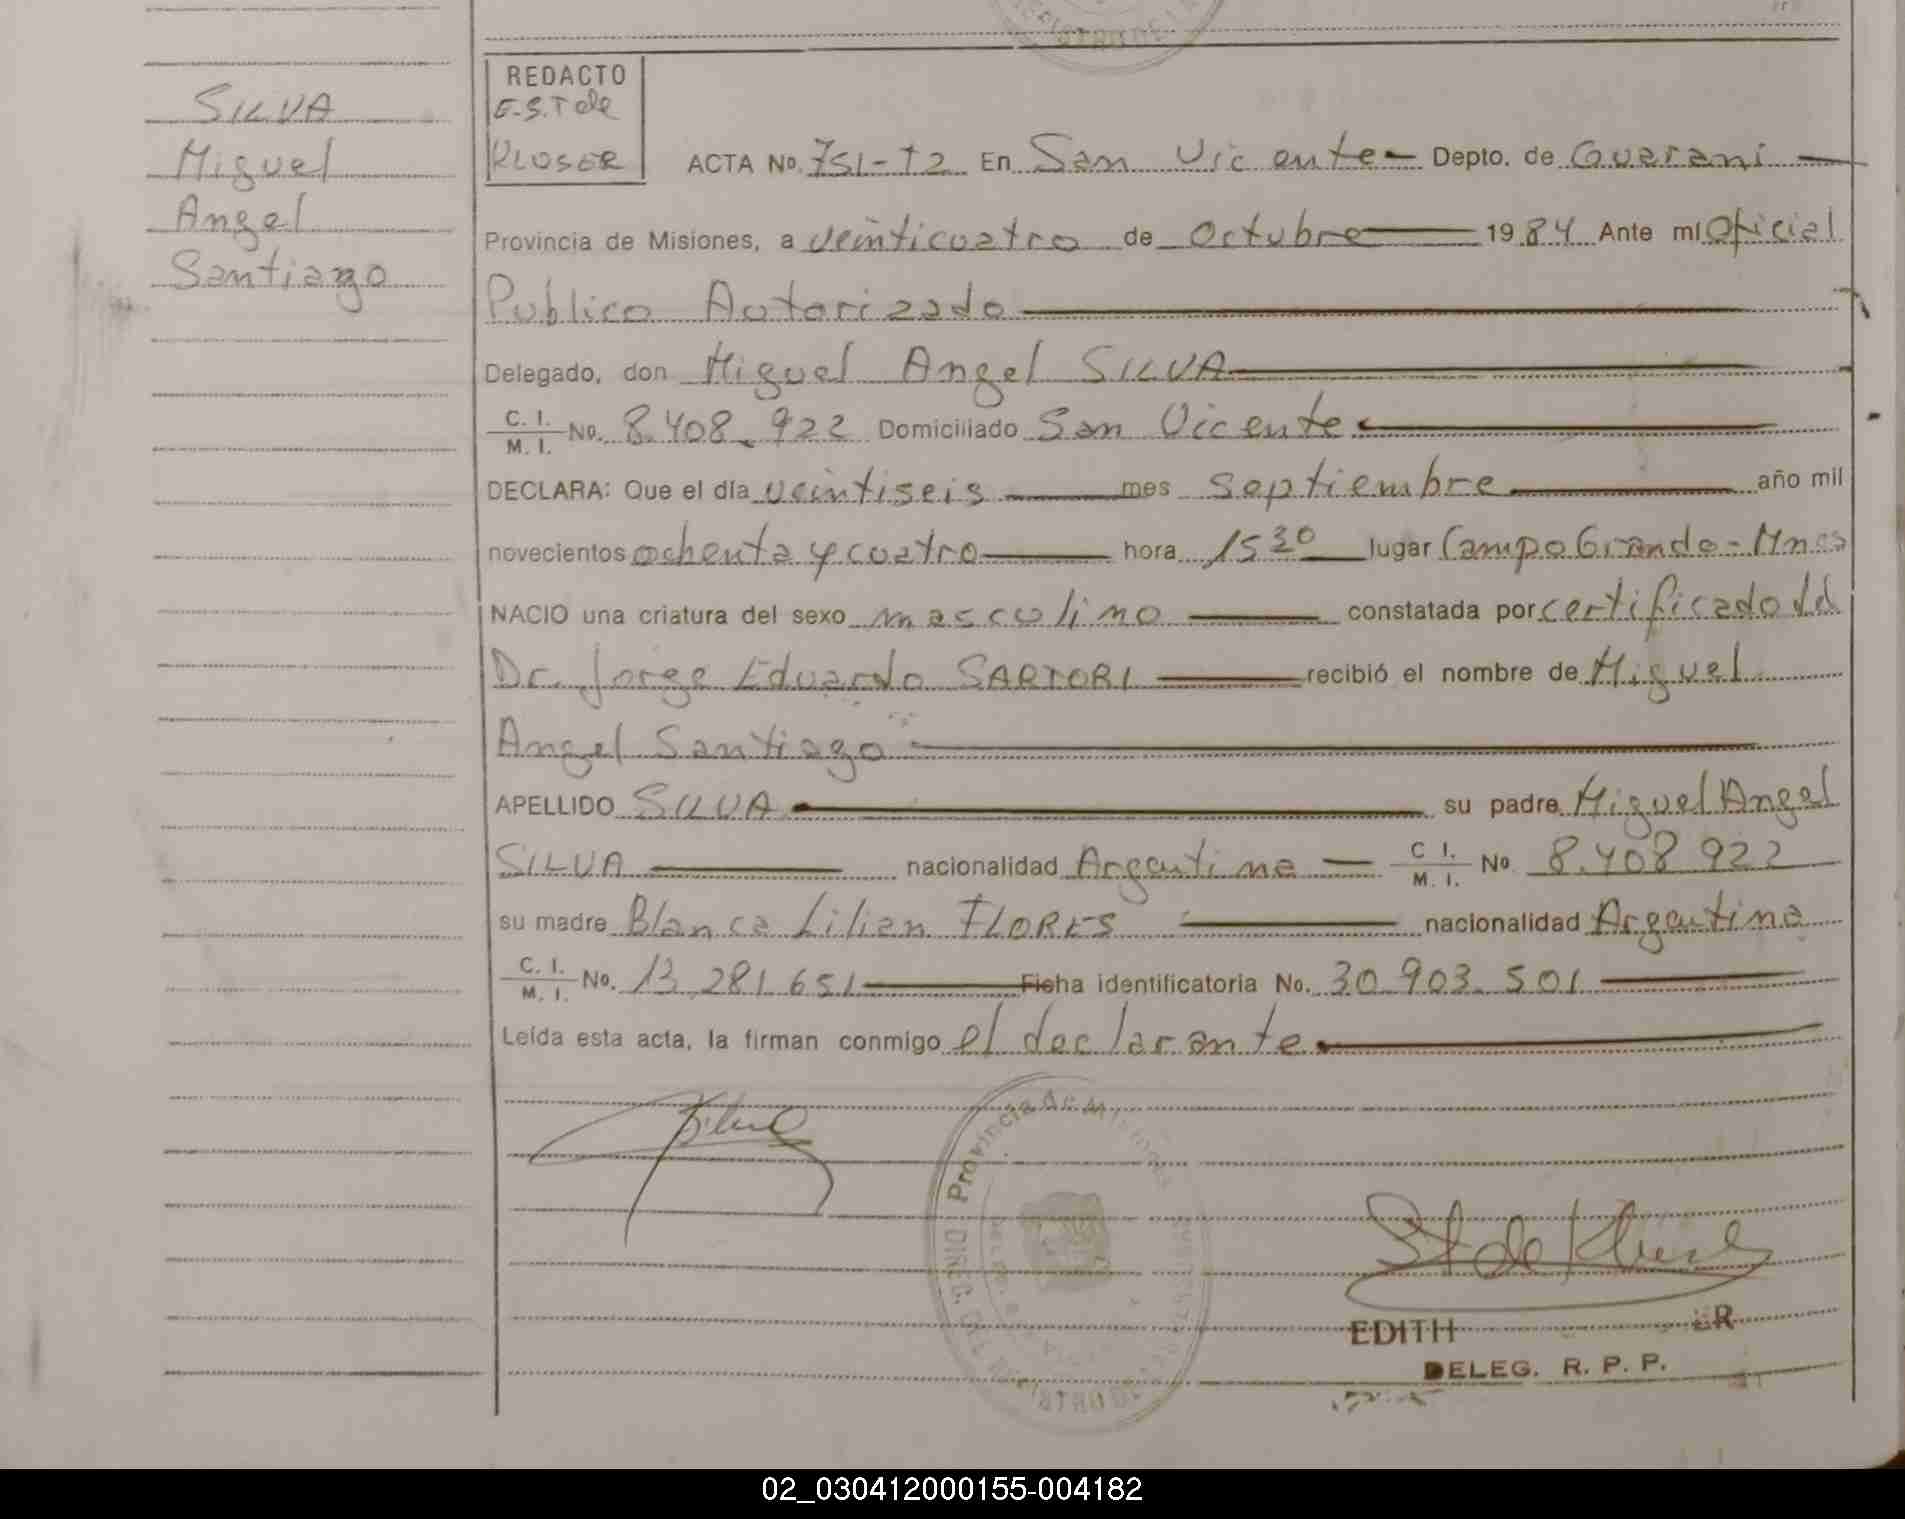 REDACTO
E.S.T de
KLOSER
SILVA
Miguel
Angel
Santiago
ACTA No. 751-T2 En San Vicente Depto. de Guarani
Provincia de Misiones, a veinticuatro de Octubre 1984 Ante mi Oficial
Publico Autorizado
Delegado, don Miguel Angel SILVA
C. I. / M. I. No. 8.408.922 Domiciliado San Vicente
DECLARA: Que el día veintiseis mes septiembre año mil
novecientos ochenta y cuatro hora 15 30 lugar Campo Grande - Mnes
NACIO una criatura del sexo masculino constatada por certificado del
Dr. Jorge Eduardo SARTORI recibió el nombre de Miguel
Angel Santiago
APELLIDO SILVA su padre Miguel Angel
SILVA nacionalidad Argentina C I. / M. I. No 8.408 922
su madre Blanca Lilian FLORES nacionalidad Argentina
C. I. / M. I. No. 13.281.651 Ficha identificatoria No. 30.903.501
Leída esta acta, la firman conmigo el declarante
Provincia de Misiones
EDITH ER
DELEG. R. P. P.
02_030412000155-004182